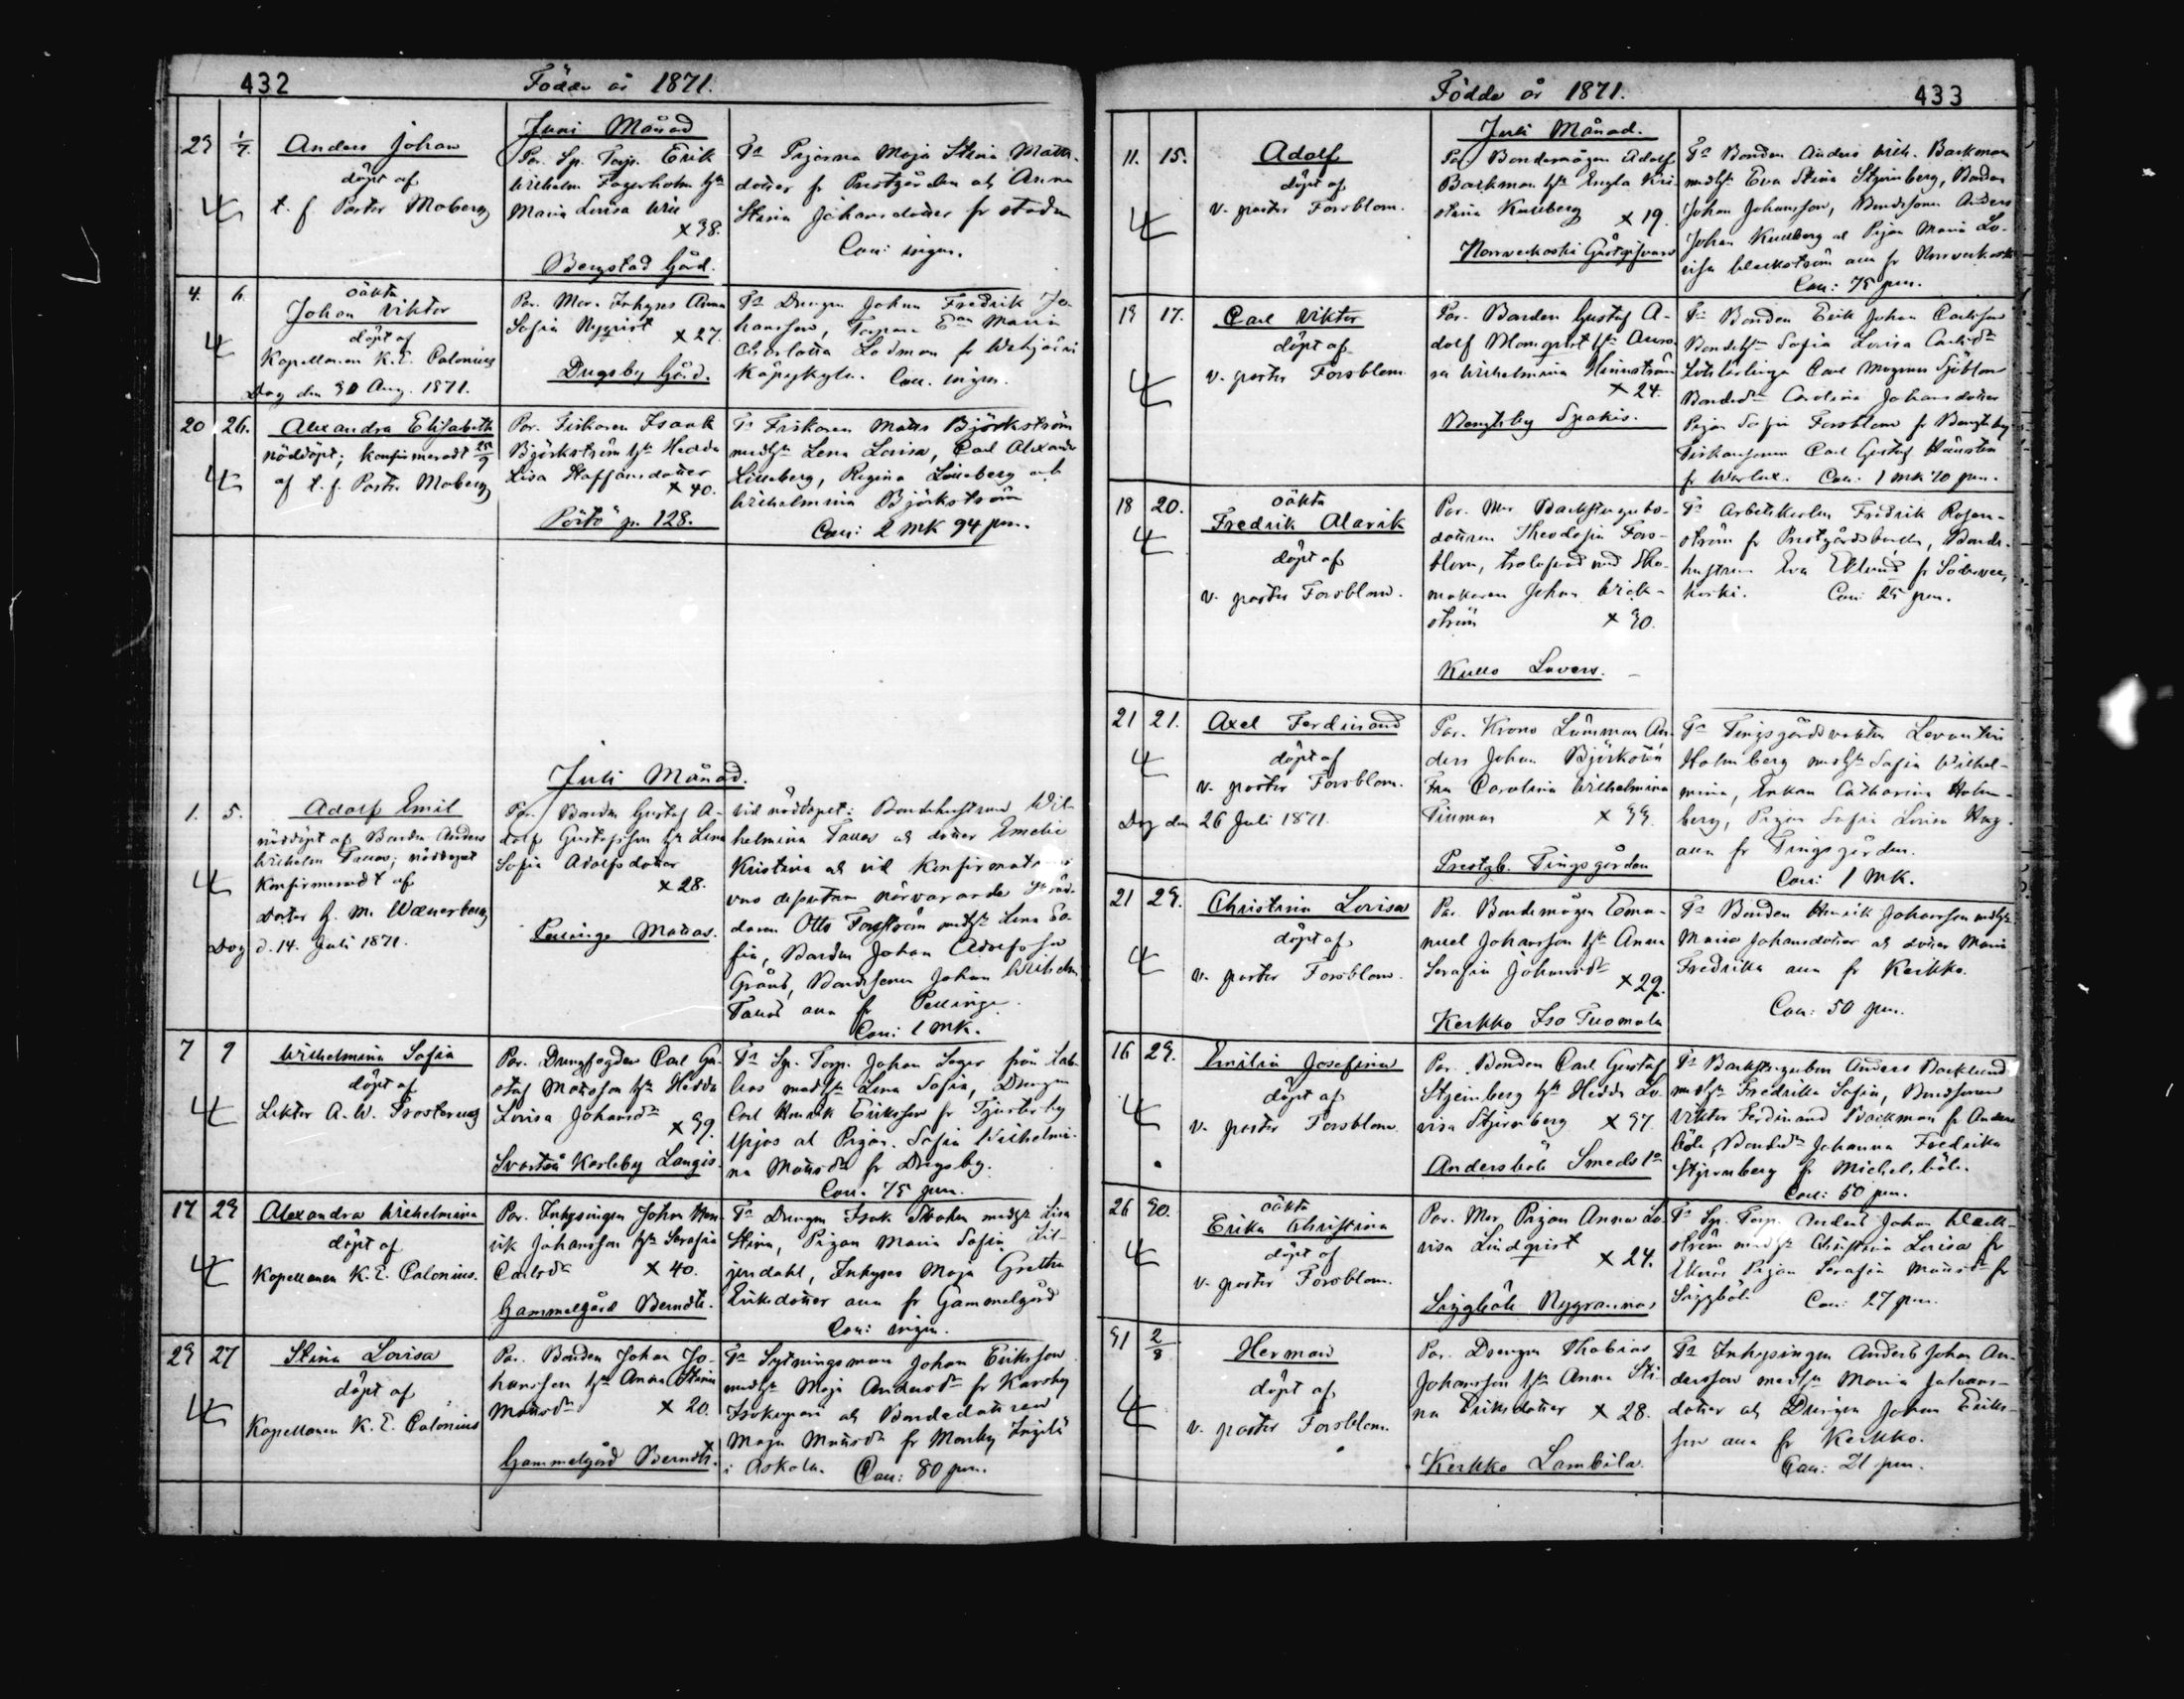 432
Födde år 1871.
Juni Månad
23 1/7. Anders Johan
döpt af
t. f. Pastor Moberg
Par. Sp. Torp. Erik
Wilhelm Fagerholm hu
Maria Lovisa
x 38.
Bengstad Gård.
Ta Pigorna Maja Stina Matts-
dotter fr Prestgården och Anna
Stina Johansdotter fr staden
Coll: ingen.
4. 6. oäkta
Johan Viktor
döpt af
Kapellanen K. E. Calonius
Dog den 30 Aug. 1871.
Par. Mor. Inhyses Anna
Sofia Nyqvist x 27.
Drugsby Gård.
Ta Drengen Johan Fredrik Jo-
hansson, Maria
Charlotta Lodman fr
Coll. ingen.
20 26. Alexandra Elisabeth
nöddöpt; konfirmeradt
af t. f. Pastor Moberg
Par. Fiskaren Isaak
Björkström hu Hedda
Lisa Staffansdotter
x 40.
Pörtö p. 128.
Ta Fiskaren Matts Björkström
med hu Lena Lovisa, Carl Alexander
Lilleberg, Regina Lilleberg och
Wilhelmina Björkström
Coll: 2 mk 94 pen.
Juli Månad.
1. 5. Adolf Emil
nöddöpt af Bonden Anders
Wilhelm Tallas; nöddopet
konfirmeradt af
Doktor G. M. Waenerberg
Dog d. 14. Juli 1871.
Par. Bonden Gustaf A-
dolf Gustafsson hu Lena
Sofia Adolfsdotter
x 28.
Pellinge Mattas.
vid nöddopet: Bondehustrun Wil-
helmina Tallas och dotter Emelie
Kristina och vid konfirmation
närvarande
Otto Forsström med hu Lena So-
fia, Bonden Johan Adolfsson
Gränd, Bondesonen Johan Wilhelm
Tallas alla fr Pellinge.
Coll: 1 mk.
7 9 Wilhelmina Sofia
döpt af
Lektor A. W. Frosterus
Par. Drengfogden Carl Gu-
staf Matsson hu Hedda
Lovisa Johansdr
x 39.
Svartså Karleby Langis
Ta Sp. Torp. Johan Sager från
med hu Lena Sofia, Drengen
Carl Henrik Eriksson fr Tjusterby
och Pigan Sofia Wilhelmi-
na Mattsdr fr Drugsby.
Coll. 75 pen.
17 23 Alexandra Wilhelmina
döpt af
Kapellanen K. E. Calonius.
Par. Inhysingen Johan Hen-
rik Johansson hu Serafia
Carlsdr x 40.
Gammelgård Berndts.
Ta Drengen Isak Stolen med hu Lisa
Stina, Pigan Maria Sofia Lil-
jendahl, Inhyses Maja Gretha
Eriksdotter alla fr Gammelgård
Coll: ingen.
23 27 Stina Lovisa
döpt af
Kapellanen K. E. Calonius
Par. Bonden Johan Jo-
hansson hu Anna Stina
Mattsdr x 20.
Gammelgård Berndts.
Ta Sytningsman Johan Eriksson
med hu Maja Andersdr fr Karsby
och Bondedottren
Maja Mattsdr fr Monby
i Askola. Coll: 80 pen.
Födde år 1871.
433
Juli Månad.
11. 15. Adolf
döpt af
v. pastor Forsblom.
Par. Bondemågen Adolf
Backman hu Engla Kri-
stina Kullberg x 19.
Norrveckoski Gästgifvars
Ta Bonden Anders Wilh. Backman
med hu Eva Stina Stjernberg, Bonden
Johan Johansson, Bondesonen Anders
Johan Kullberg och Pigan Maria Lo-
visa Weckström alla fr Norrveckoski
Coll: 75 pen.
13 17. Carl Viktor
döpt af
v. pastor Forsblom
Par. Bonden Gustaf A-
dolf Malmqvist hu Auro-
ra Wilhelmina Hennström
x 24.
Bengtsby Spakis.
Ta Bonden Erik Johan Carlsson
Bondehu Sofia Lovisa Carlsdr
Lotslärlinge Carl Magnus Sjöblom
Bondedr Carolina Johansdotter
Pigan Sofia Forsblom fr Bengtsby
Fiskaresonen Carl Gustaf
fr Warlax. Coll: 1 mk 70 pen.
18 20. oäkta
Fredrik Alarik
döpt af
v. pastor Forsblom.
Par. Mor Backstugubo-
dottren Theodosia Fors-
blom, trolofvad med Sko-
makaren Johan Wick-
ström x 30.
Kullo Lavers.
Ta Arbetskarlen Fredrik Rosen-
ström fr Prestgårdsbacken, Bonde-
hustrun Eva Eklund fr Söderveck-
koski. Coll: 25 pen.
21 21. Axel Ferdinand
döpt af
v. pastor Forsblom.
Dog den 26 Juli 1871.
Par. Krono Länsman An-
ders Johan Björkstén
Fru Carolina Wilhelmina
Timman x 33.
Prestgb. Tingsgården
Ta Tingsgårdsvakten Levantin
Holmberg med hu Sofia Wilhel-
mina, Enkan Catharina Holm-
berg, Pigan Sofia Lovisa
alla fr Tingsgården.
Coll: 1 mk.
21 23. Christina Lovisa
döpt af
v. pastor Forsblom.
Par. Bondemågen Ema-
nuel Johansson hu Anna
Serafia Johansdr
x 29.
Kerkko Iso Tuomola
Ta Bonden Henrik Johansson med hu
Maria Johansdotter och dotter Maria
Fredrika alla fr Kerkko.
Coll: 50 pen.
16 23. Emilia Josefina
döpt af
v. pastor Forsblom.
Par. Bonden Carl Gustaf
Stjernberg hu Hedda Lo-
visa Stjernberg x 37.
Andersböle Smeds
Ta Backstuguboen Anders Backlund
med hu Fredrika Sofia, Bondesonen
Viktor Ferdinand Backman fr Anders-
böle, Bondedr Johanna Fredrika
Stjernberg fr Michelsböle.
Coll: 50 pen.
26 30. oäkta
Erika Christina
döpt af
v. pastor Forsblom.
Par. Mor Pigan Anna Lo-
visa Lindqvist x 24.
Siggböle Nygrannas
Ta Sp. Torp. Anders Johan Weck-
ström med hu Christina Lovisa fr
Eknäs Pigan Serafia Mattsdr fr
Siggböle Coll: 27 pen.
31 2/8 Herman
döpt af
v. pastor Forsblom.
Par. Drengen Thobias
Johansson hu Anna Sti-
na Eriksdotter x 28.
Kerkko Lambila.
Ta Inhysingen Anders Johan An-
dersson med hu Maria Johans-
dotter och Drengen Johan Eriks-
son alla fr Kerkko.
Coll: 21 pen.